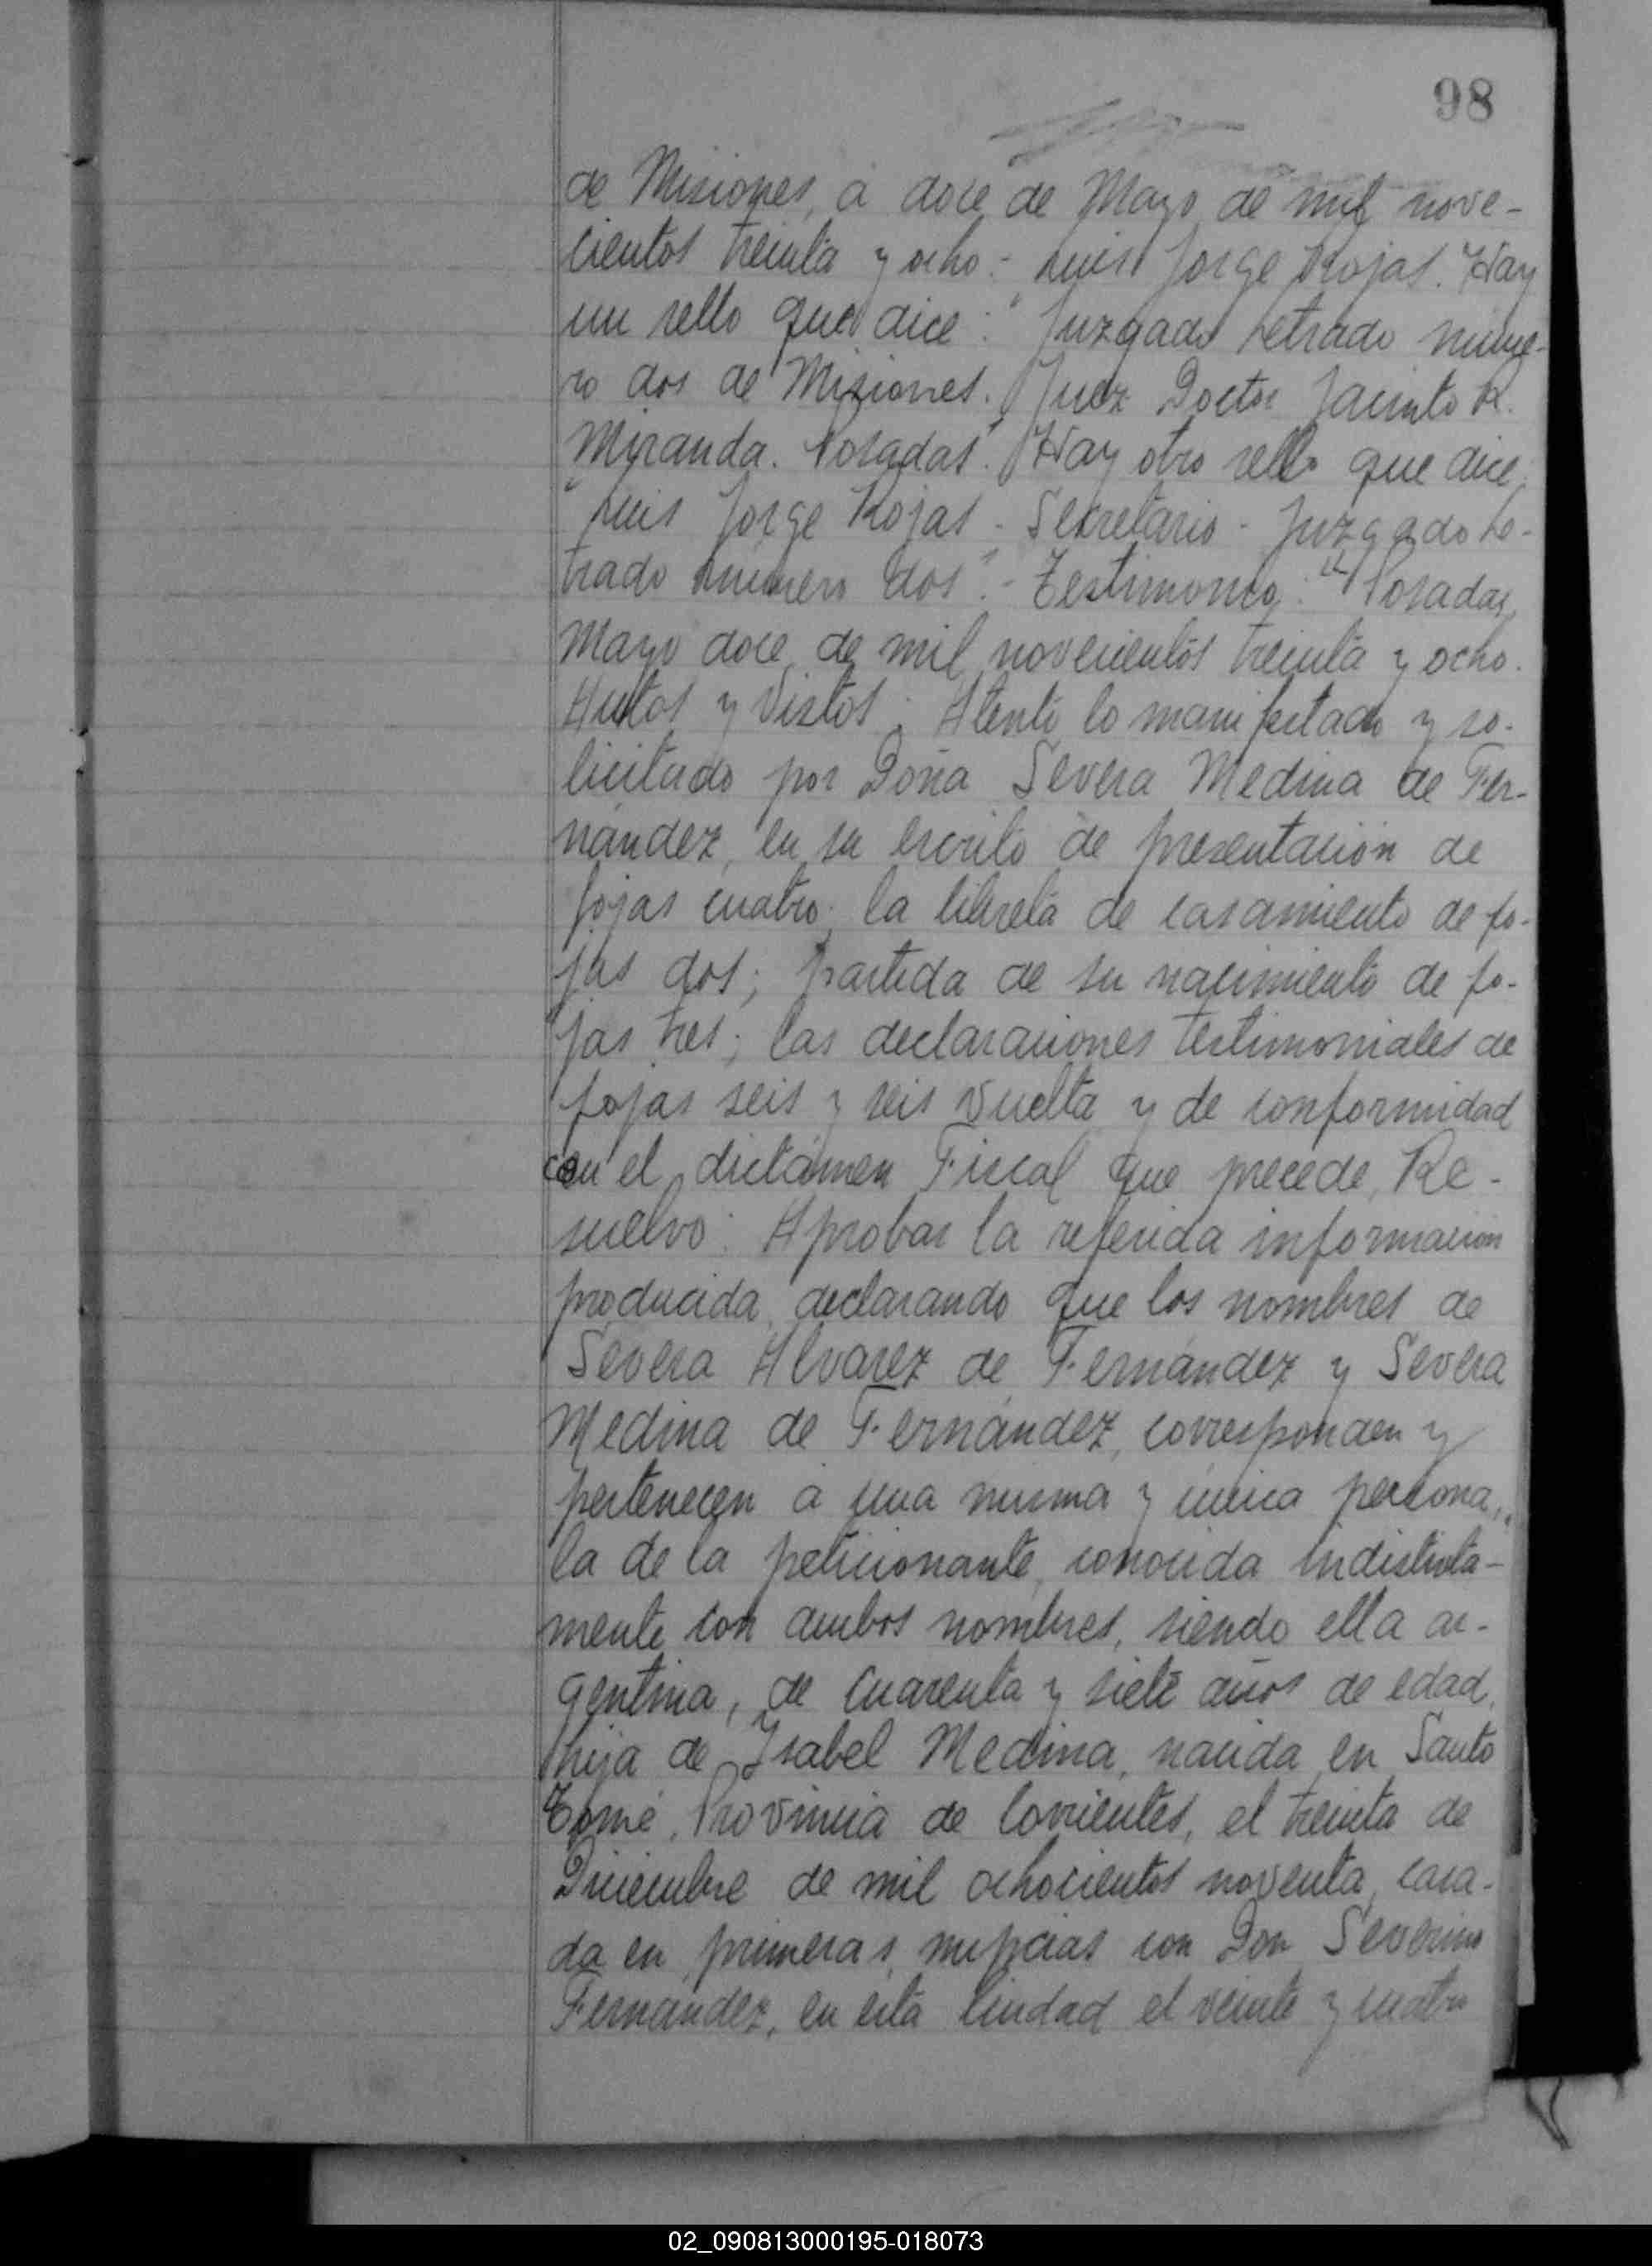 98
de Misiones, á doce de Mayo de mil nove-
cientos treinta y ocho.- Luis Jorge Rojas. Hay
un sello que dice: "Juzgado Letrado núme-
ro dos de Misiones. Juez Doctor Jacinto R.
Miranda. Posadas". Hay otro sello que dice:
"Luis Jorge Rojas - Secretario - Juzgado Le-
trado número dos".- Testimonio: "Posadas,
Mayo doce de mil novecientos treinta y ocho.
Autos y Vistos: Atento lo manifestado y so-
licitado por Doña Severa Medina de Fer-
nández, en su escrito de presentación de
fojas cuatro; la libreta de casamiento de fo-
jas dos; partida de su nacimiento de fo-
jas tres; las declaraciones testimoniales de
fojas seis y seis vuelta y de conformidad
con el dictámen Fiscal que precede, Re-
suelvo: Aprobar la referida información
producida, declarando que los nombres de
Severa Alvarez de Fernández y Severa
Medina de Fernández, corresponden y
pertenecen á una misma y única persona,
la de la peticionante, conocida indistinta-
mente con ambos nombres, siendo ella ar-
gentina, de cuarenta y siete años de edad,
hija de Ysabel Medina, nacida en Santo
Tomé, Provincia de Corrientes, el treinta de
Diciembre de mil ochocientos noventa, casa-
da en primeras nupcias con Don Severino
Fernández, en esta Ciudad el veinte y cuatro
02_090813000195-018073